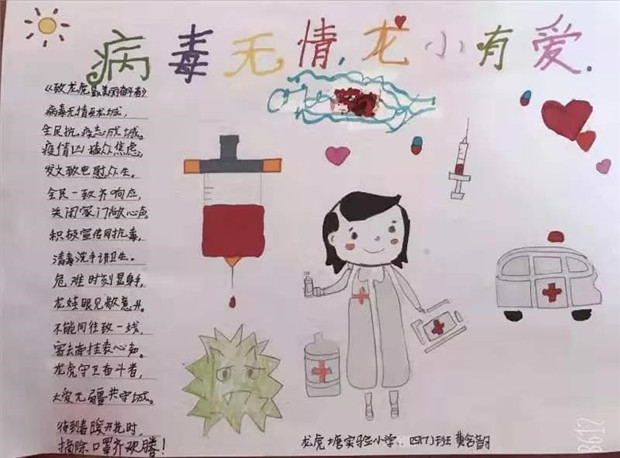 病毒无情,龙小有爱.
《致龙虎最美丽奋斗者》
病毒无情在龙城,
全民抗疫志成城。
疫情凶猛众焦虑,
发文致电慰众生。
全民一致齐响应,
关闭家门献心声
积极宣传同抗毒,
消毒洗手讲卫生。
危难时刻显身手,
龙娃眼见散意升。
不能同往致一线,
寄去牵挂表心声。
龙虎守卫奋斗者,
大爱无疆共守城。
待到春暖开花时,
摘除口罩齐欢腾!
龙虎塘实验小学. 四(7)班 黄
B612